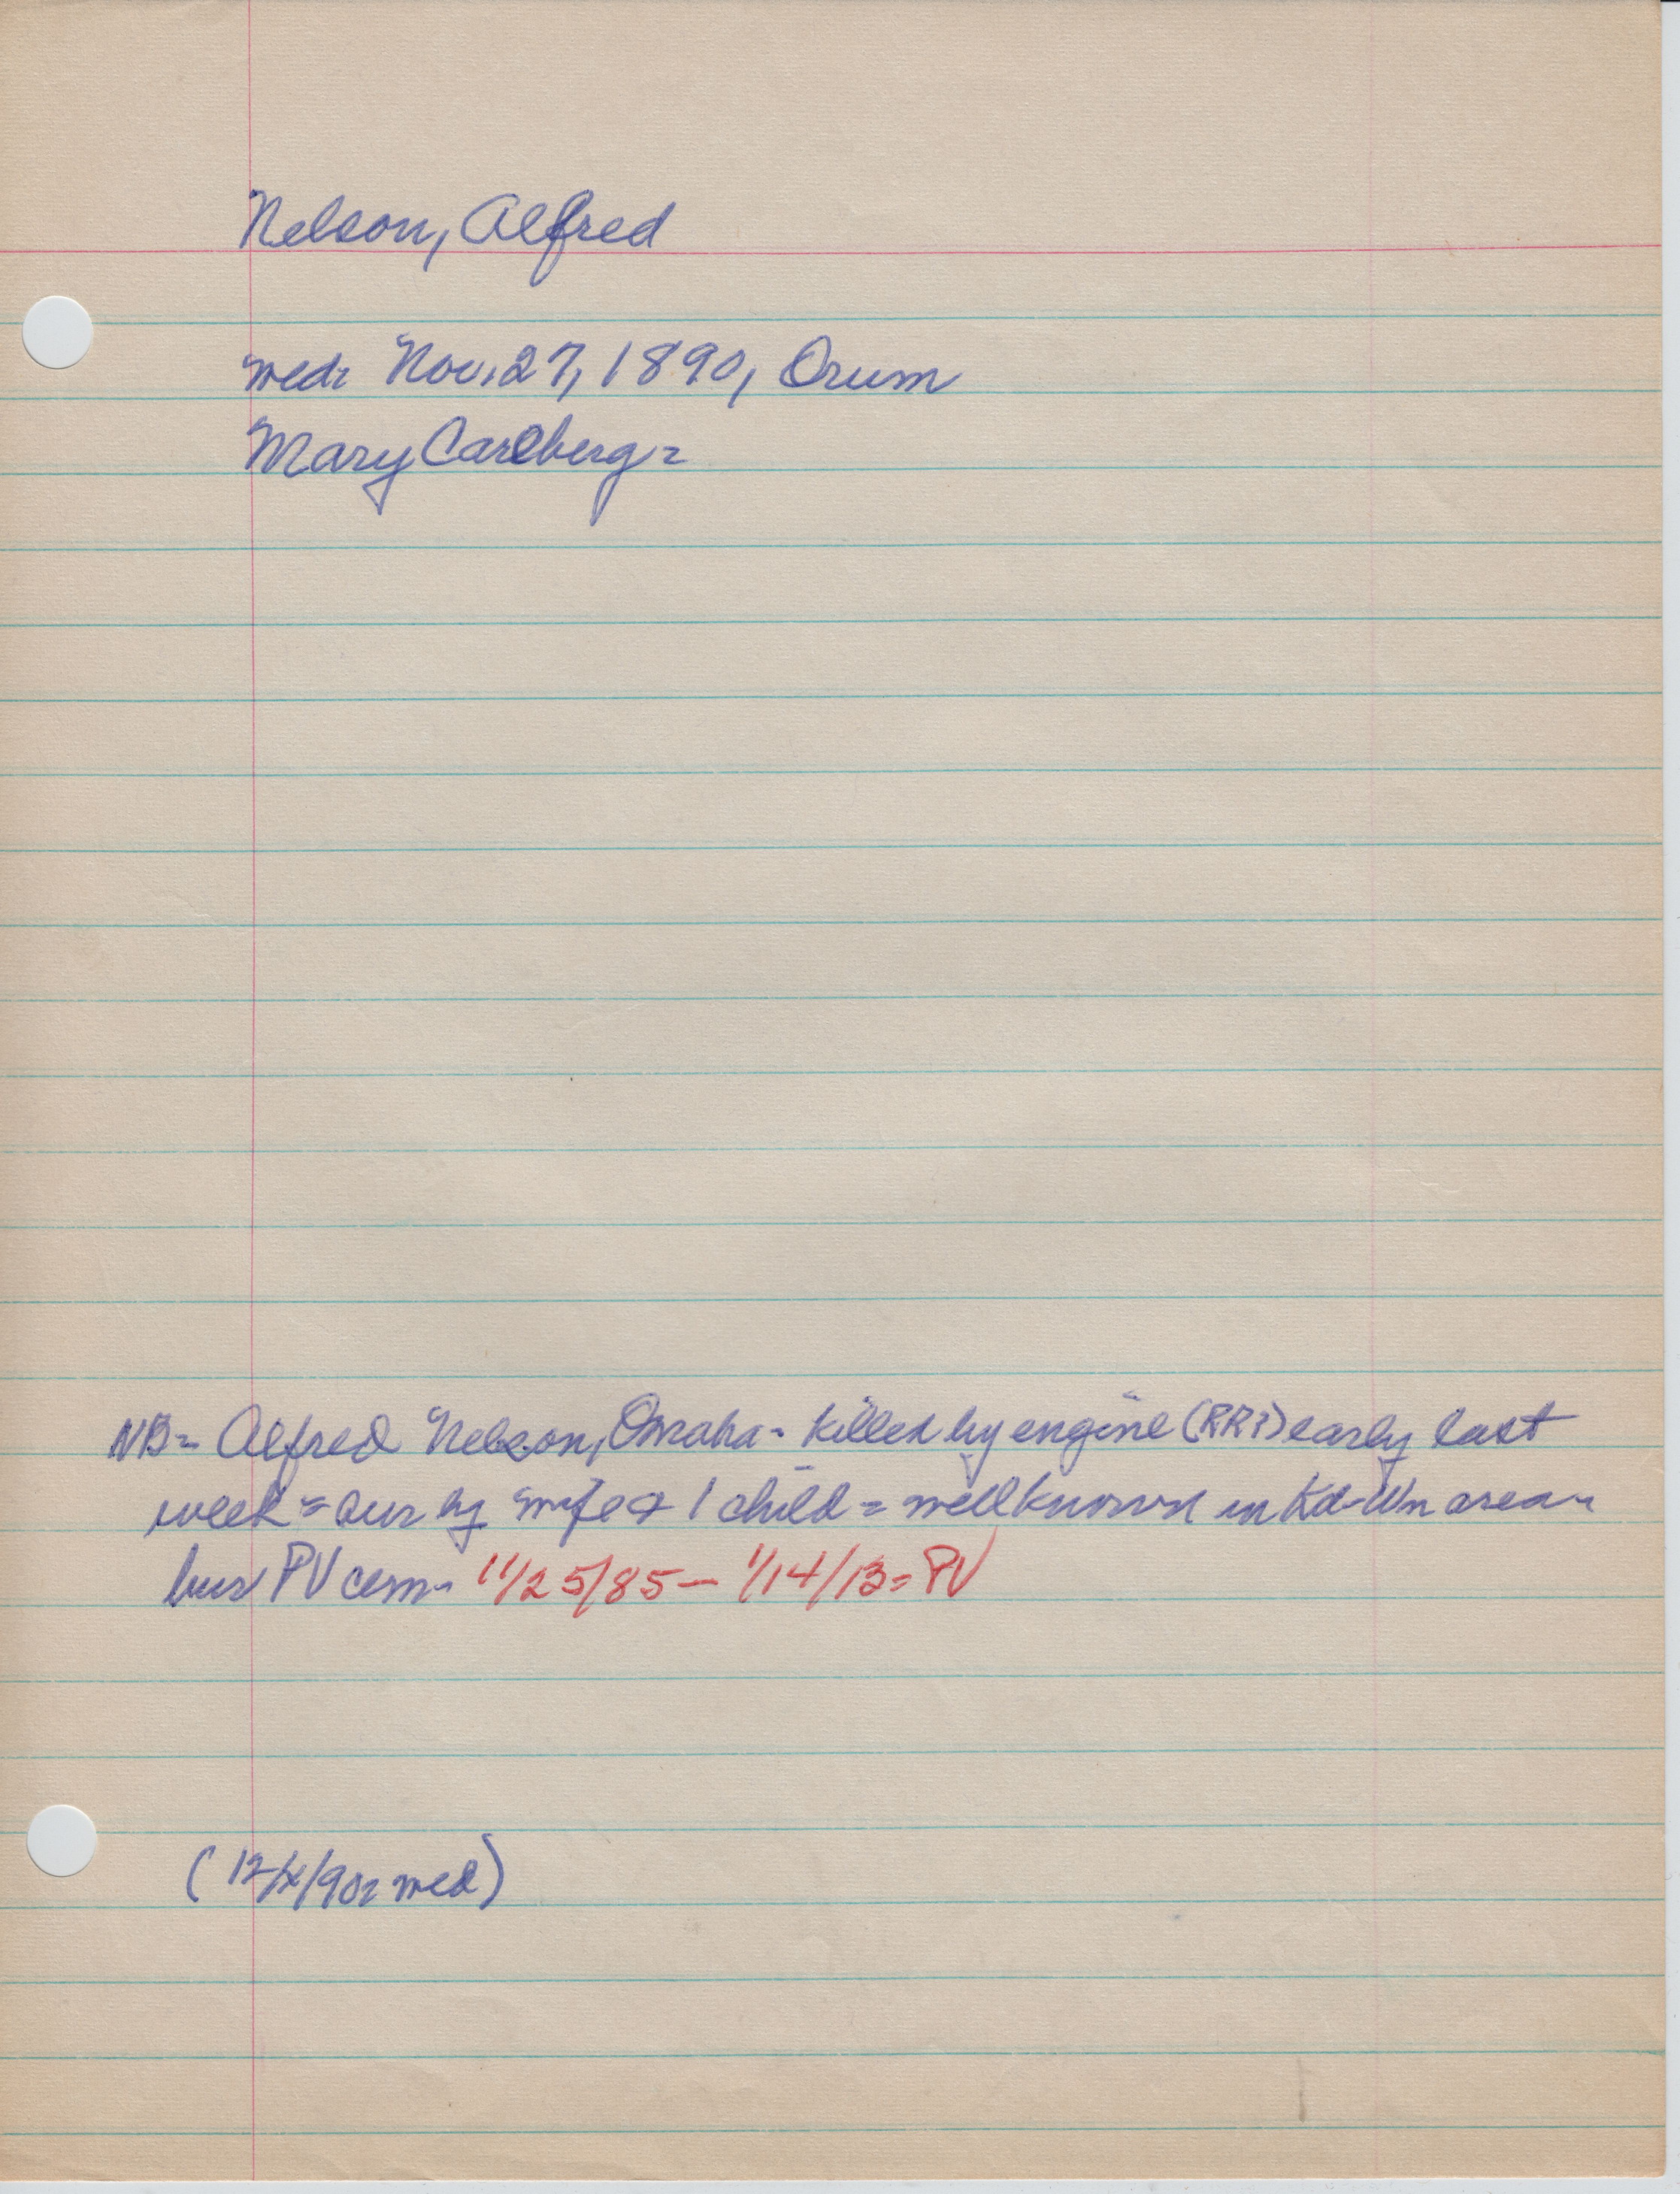 Nelson, Alfred
wed: Nov. 27, 1890, Orum
Mary Carlberg =
NB = Alfred Nelson, Omaha - killed by engine (RR?) early last
week = sur by wife & 1 child = well known in Kd-Wn area -
bur PV cem - 11/25/85 — 1/14/13 = PV
(12/4/90 = wed)